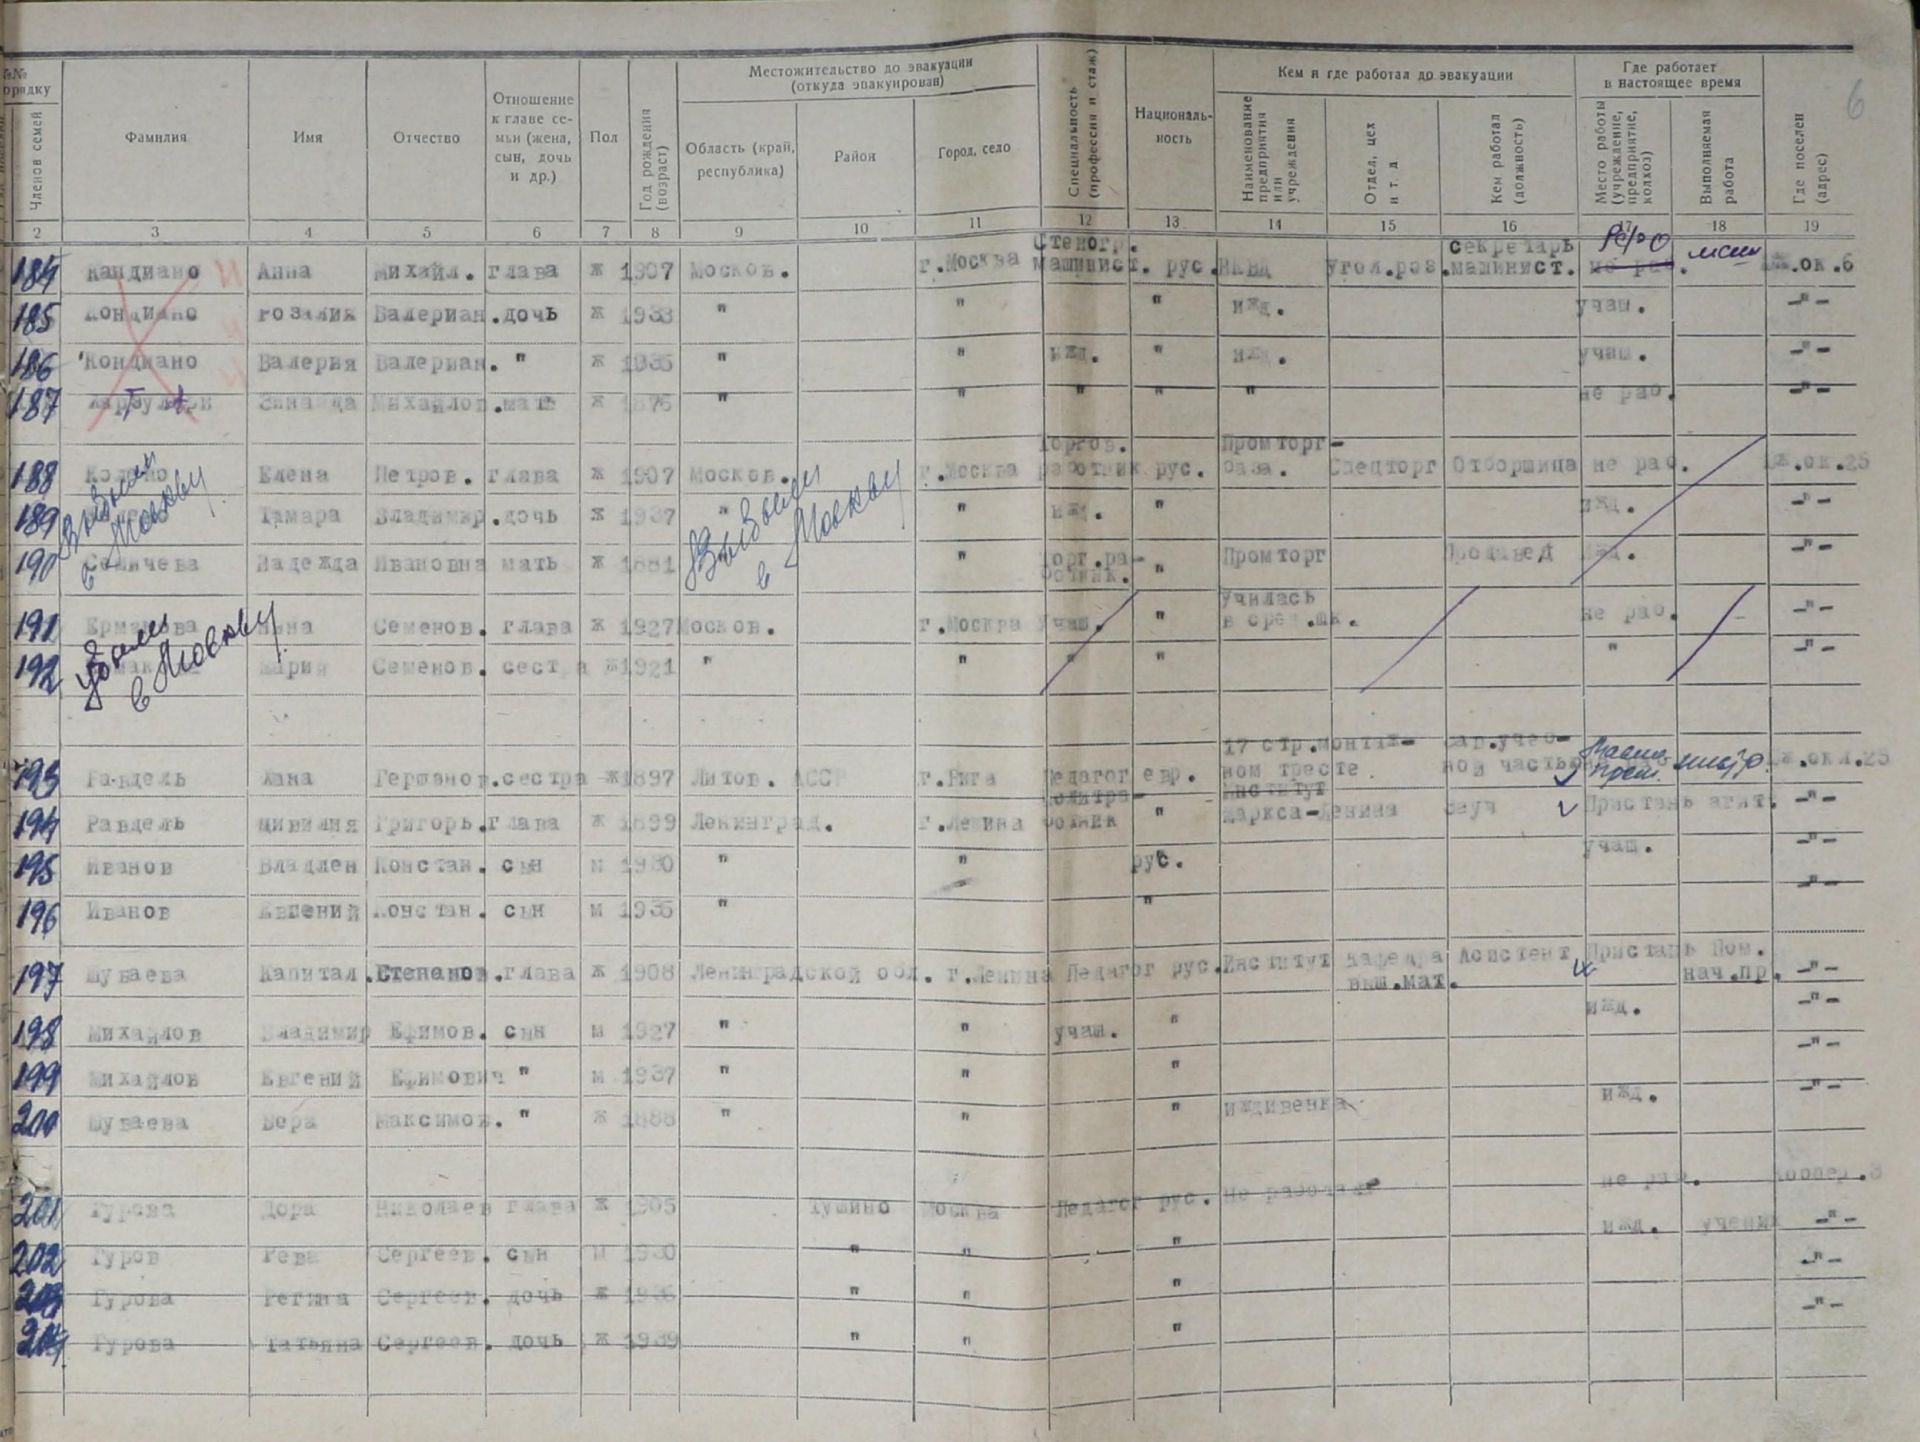 6
№№
порядку
Членов семей
Фамилия
Имя
Отчество
Отношение к главе семьи (жена, сын, дочь и др.)
Пол
Год рождения (возраст)
Местожительство до эвакуации (откуда эвакуирован)
Область (край, республика)
Район
Город, село
Специальность (профессия и стаж)
Национальность
Кем и где работал до эвакуации
Наименование предприятия или учреждения
Отдел, цех и т. д.
Кем работал (должность)
Где работает в настоящее время
Место работы (учреждение, предприятие, колхоз)
Выполняемая работа
Где поселен (адрес)
2 3 4 5 6 7 8 9 10 11 12 13 14 15 16 17 18 19
184 Кандиано Анна Михайл. глава ж 1907 Москов. г.Москва Стеногр. машинист. рус. НКВД угол.роз. секретарь машинист. не раб. .ок.6
185 Кондиано Розалия Валериан. дочь ж 1933 " " " ижд. учащ. -"-
186 Кондиано Валерия Валериан. " ж 1935 " " ижд. " ижд. учащ. -"-
187 Зинаида Михайлов. мать ж 1876 " " " " " не раб. -"-
188 Елена Петров. глава ж 1907 Москов. г.Москва Торгов. работник рус. Промторг- база. Спецторг Отборщица не раб. .ок.25
189 Тамара Владимир. дочь ж 1937 " " ижд. " ижд. -"-
190 Надежда Ивановна мать ж 1881 " Торг.ра- ботник. " Промторг ижд. -"-
Выбыли в Москву
Выбыли в Москву
191 Ермакова Семенов. глава ж 1927 Москов. г.Москва Учащ. " Училась в сред.шк. не раб. -"-
192 Мария Семенов. сестра ж 1921 " " " " " -"-
Убыли в Москву
193 Равдель Хана Германов. сестра ж 1897 Литов. АССР г.Рига Педагог евр. 17 стр.монтаж- ном тресте Зав.учеб- ной частью .ок.25
194 Равдель Цивилия Григорь. глава ж 1899 Ленинград. г.Ленина Политра- ботник " Институт Маркса-Ленина Зауч Пристань агит. -"-
195 Иванов Владлен Констан. сын м 1930 " " рус. учащ. -"-
196 Иванов Евгений Констан. сын м 1935 " " -"-
197 Шуваева Капитал. Степанов. глава ж 1908 Ленинградской обл. г.Ленина Педагог рус. Институт Кафедра выш.мат. Асистент Пристань Пом. нач.пр. -"-
198 Михайлов Владимир Ефимов. сын м 1927 " " учащ. " ижд. -"-
199 Михайлов Евгений Ефимович " м 1937 " " " -"-
200 Шуваева Вера Максимов. " ж 1888 " " " иждивенка ижд. -"-
201 Гурова Дора Николаев глава ж 1905 Тушино Москва Педагог рус. не работает не раб. Коопер.3
202 Гуров Рева Сергеев. сын м 1930 " " " ижд. ученик -"-
203 Гурова Регина Сергеев. дочь ж " " " -"-
204 Гурова Татьяна Сергеев. дочь ж 1939 " " " -"-